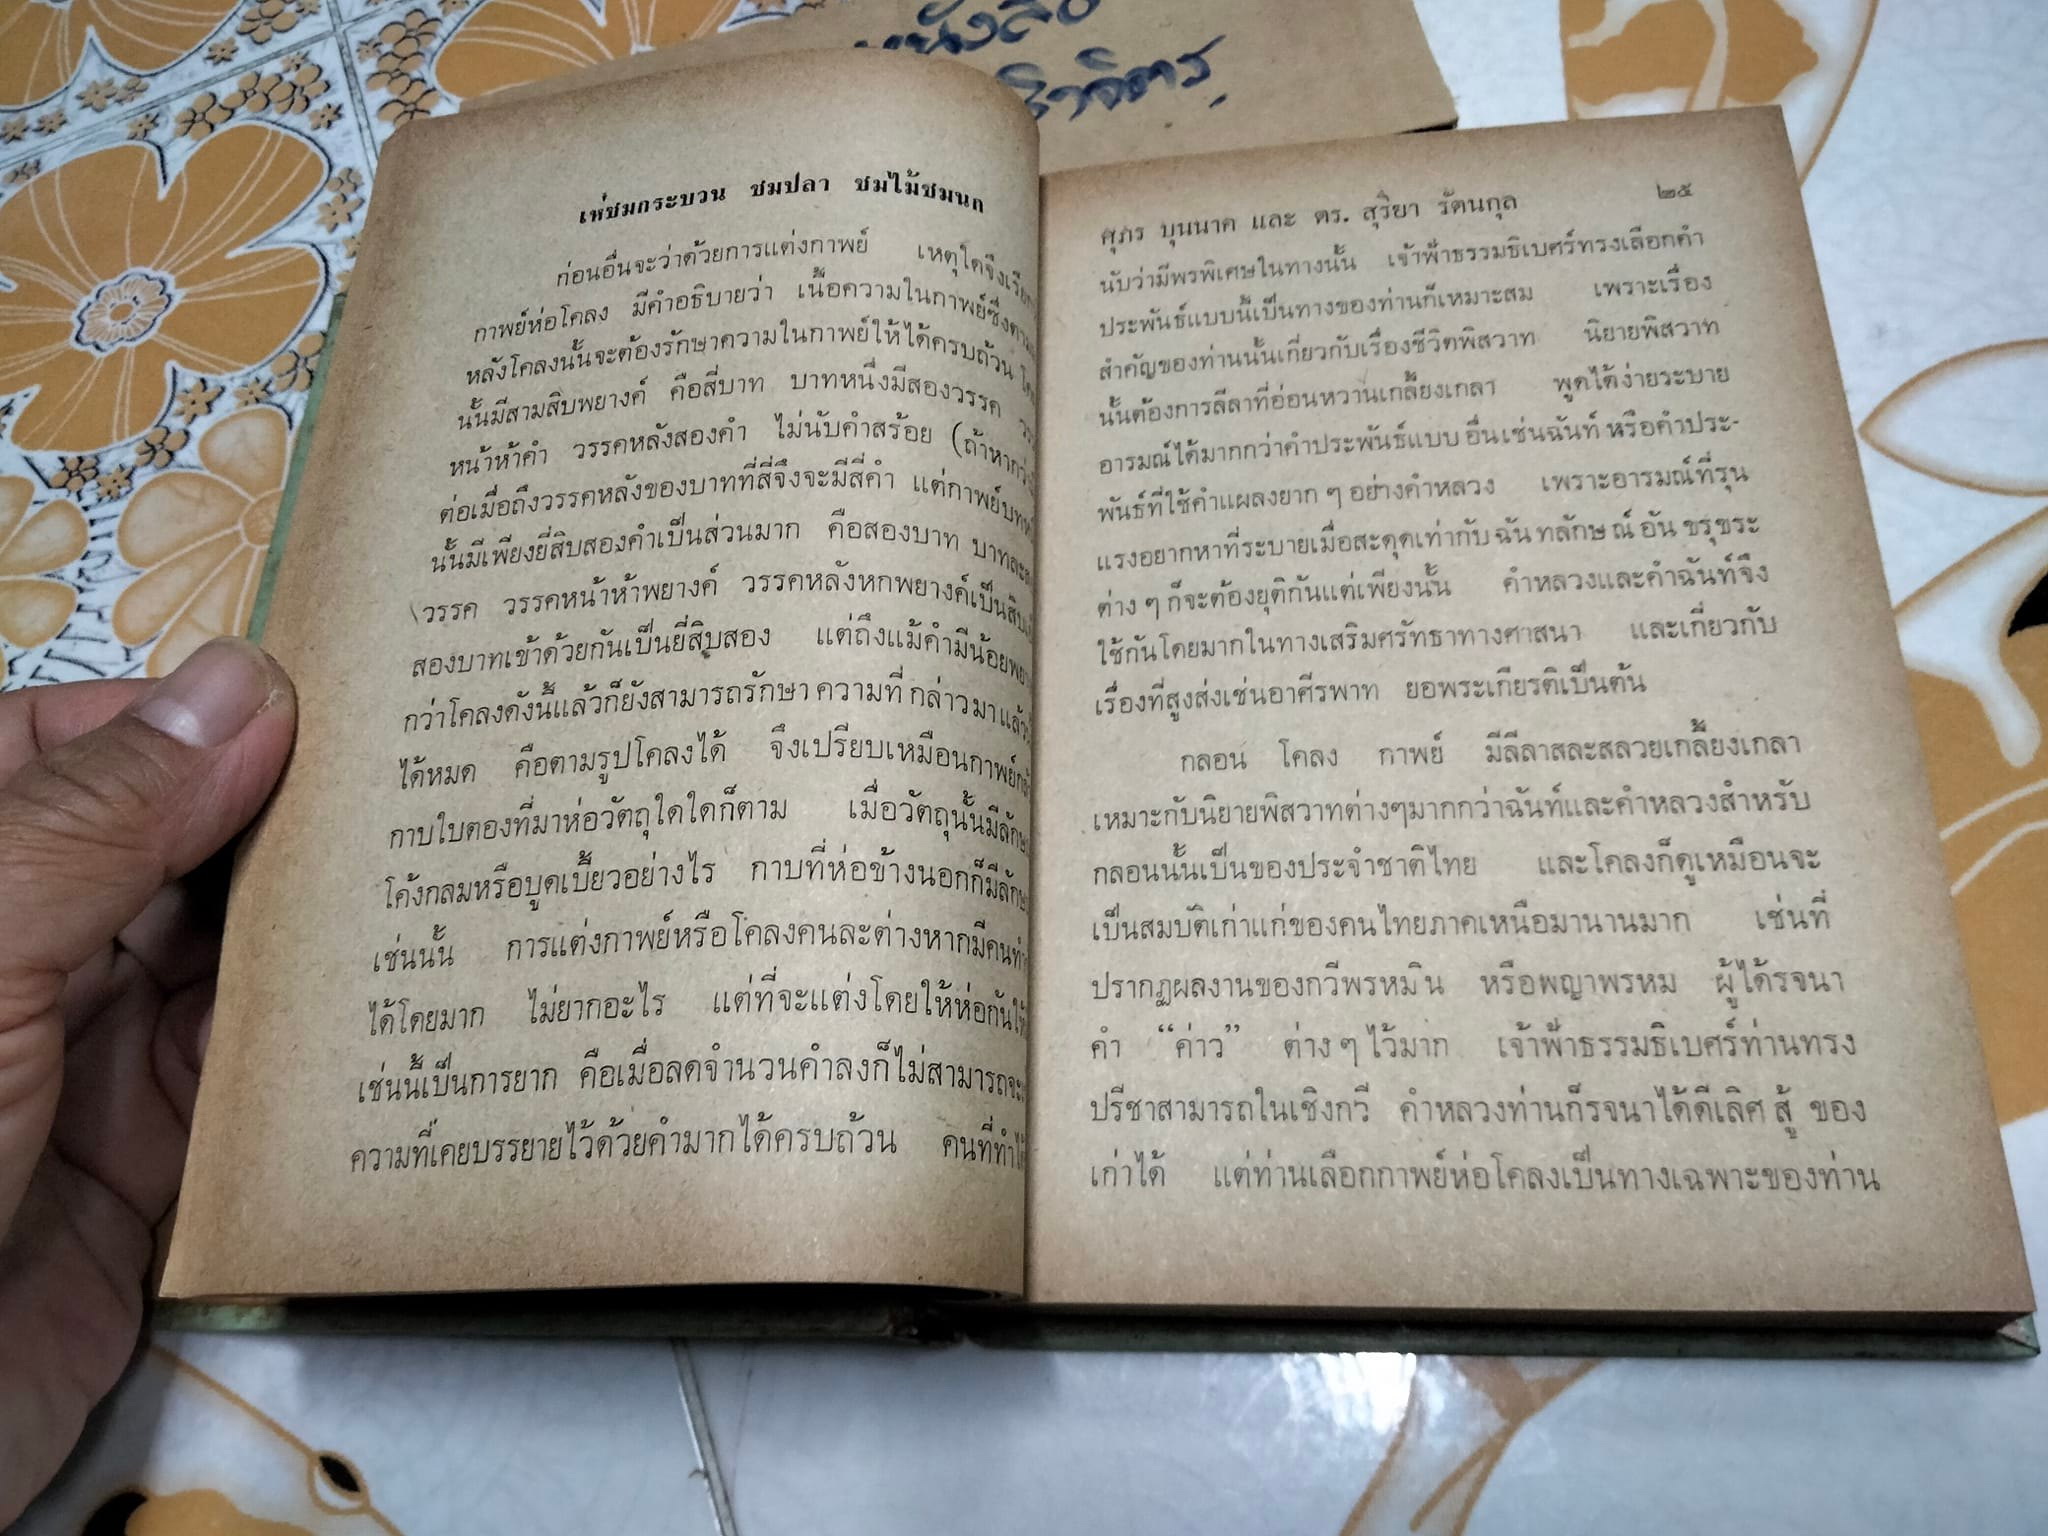 หนังสือ
เห่ชมกระบวน ชมปลา ชมไม้ชมนก
ก่อนอื่นจะว่าด้วยการแต่งกาพย์ เหตุใดจึงเรียก
กาพย์ห่อโคลง มีคำอธิบายว่า เนื้อความในกาพย์ซึ่งตาม
หลังโคลงนั้นจะต้องรักษาความในกาพย์ให้ได้ครบถ้วน
นั้นมีสามสิบพยางค์ คือสี่บาท บาทหนึ่งมีสองวรรค
หน้าห้าคำ วรรคหลังสองคำ ไม่นับคำสร้อย (ถ้าหาก
ต่อเมื่อถึงวรรคหลังของบาทที่สี่จึงจะมีสี่คำ แต่กาพย์
นั้นมีเพียงยี่สิบสองคำเป็นส่วนมาก คือสองบาท บาทละ
วรรค วรรคหน้าห้าพยางค์ วรรคหลังหกพยางค์เป็น
สองบาทเข้าด้วยกันเป็นยี่สิบสอง แต่ถึงแม้คำมีน้อย
กว่าโคลงดังนี้แล้วก็ยังสามารถรักษา ความที่ กล่าว มา แล้ว
ได้หมด คือตามรูปโคลงได้ จึงเปรียบเหมือนกาพย์
กาบใบตองที่มาห่อวัตถุใดใดก็ตาม เมื่อวัตถุนั้นมี
โค้งกลมหรือบูดเบี้ยวอย่างไร กาบที่ห่อข้างนอกก็มี
เช่นนั้น การแต่งกาพย์หรือโคลงคนละต่างหากมีคน
ได้โดยมาก ไม่ยากอะไร แต่ที่จะแต่งโดยให้ห่อกัน
เช่นนี้เป็นการยาก คือเมื่อลดจำนวนคำลงก็ไม่สามารถ
ความที่เคยบรรยายไว้ด้วยคำมากได้ครบถ้วน คนที่ทำ
ศุภร บุนนาค และ ดร. สุริยา รัตนกุล ๒๕
นับว่ามีพรพิเศษในทางนั้น เจ้าฟ้าธรรมธิเบศร์ทรงเลือกคำ
ประพันธ์แบบนี้เป็นทางของท่านก็เหมาะสม เพราะเรื่อง
สำคัญของท่านนั้นเกี่ยวกับเรื่องชีวิตพิสวาท นิยายพิสวาท
นั้นต้องการลีลาที่อ่อนหวานเกลี้ยงเกลา พูดได้ง่ายระบาย
อารมณ์ได้มากกว่าคำประพันธ์แบบ อื่น เช่นฉันท์ หรือคำประ-
พันธ์ที่ใช้คำแผลงยาก ๆ อย่างคำหลวง เพราะอารมณ์ที่รุน
แรงอยากหาที่ระบายเมื่อสะดุดเท่ากับ ฉัน ทลักษ ณ์ อัน ขรุขระ
ต่าง ๆ ก็จะต้องยุติกันแต่เพียงนั้น คำหลวงและคำฉันท์จึง
ใช้กันโดยมากในทางเสริมศรัทธาทางศาสนา และเกี่ยวกับ
เรื่องที่สูงส่งเช่นอาศีรพาท ยอพระเกียรติเป็นต้น
กลอน โคลง กาพย์ มีลีลาสละสลวยเกลี้ยงเกลา
เหมาะกับนิยายพิสวาทต่างๆมากกว่าฉันท์และคำหลวงสำหรับ
กลอนนั้นเป็นของประจำชาติไทย และโคลงก็ดูเหมือนจะ
เป็นสมบัติเก่าแก่ของคนไทยภาคเหนือมานานมาก เช่นที่
ปรากฏผลงานของกวีพรหมิน หรือพญาพรหม ผู้ได้รจนา
คำ “ค่าว” ต่าง ๆ ไว้มาก เจ้าฟ้าธรรมธิเบศร์ท่านทรง
ปรีชาสามารถในเชิงกวี คำหลวงท่านก็รจนาได้ดีเลิศ สู้ ของ
เก่าได้ แต่ท่านเลือกกาพย์ห่อโคลงเป็นทางเฉพาะของท่าน